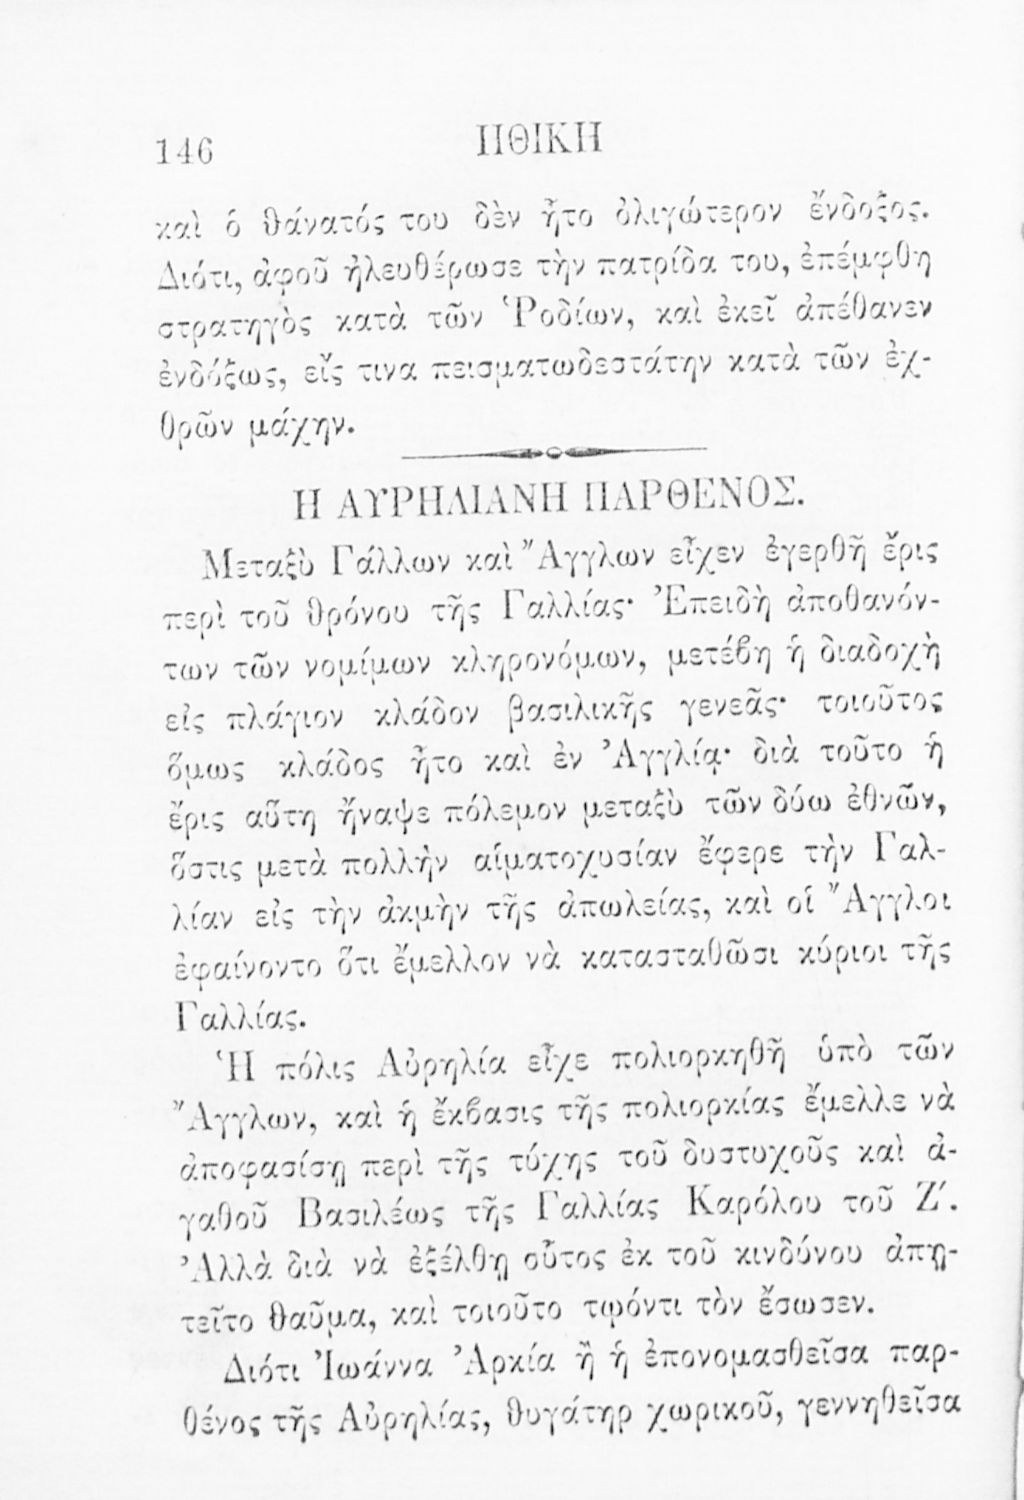 146
ΗΘΙΚΗ
καὶ ὁ θάνατός του δὲν ἦτο ὀλιγώτερον ἔνδοξος.
Διότι, ἀφοῦ ἠλευθέρωσε τὴν πατρίδα του, ἐπέμφθη
στρατηγὸς κατὰ τῶν Ῥοδίων, καὶ ἐκεῖ ἀπέθανεν
ἐνδόξως, εἴς τινα πεισματωδεστάτην κατὰ τῶν ἐχ-
θρῶν μάχην.
Η ΑΥΡΗΛΙΑΝΗ ΠΑΡΘΕΝΟΣ.
Μεταξὺ Γάλλων καὶ Ἄγγλων εἶχεν ἐγερθῆ ἔρις
περὶ τοῦ θρόνου τῆς Γαλλίας· Ἐπειδὴ ἀποθανόν-
των τῶν νομίμων κληρονόμων, μετέβη ἡ διαδοχὴ
εἰς πλάγιον κλάδον βασιλικῆς γενεᾶς· τοιοῦτος
ὅμως κλάδος ἦτο καὶ ἐν Ἀγγλίᾳ· διὰ τοῦτο ἡ
ἔρις αὕτη ἤναψε πόλεμον μεταξὺ τῶν δύω ἐθνῶν,
ὅστις μετὰ πολλὴν αἱματοχυσίαν ἔφερε τὴν Γαλ-
λίαν εἰς τὴν ἀκμὴν τῆς ἀπωλείας, καὶ οἱ Ἄγγλοι
ἐφαίνοντο ὅτι ἔμελλον νὰ κατασταθῶσι κύριοι τῆς
Γαλλίας.
Ἡ πόλις Αὐρηλία εἶχε πολιορκηθῆ ὑπὸ τῶν
Ἄγγλων, καὶ ἡ ἔκβασις τῆς πολιορκίας ἔμελλε νὰ
ἀποφασίσῃ περὶ τῆς τύχης τοῦ δυστυχοῦς καὶ ἀ-
γαθοῦ Βασιλέως τῆς Γαλλίας Καρόλου τοῦ Ζ΄.
Ἀλλὰ διὰ νὰ ἐξέλθῃ οὗτος ἐκ τοῦ κινδύνου ἀπῃ-
τεῖτο θαῦμα, καὶ τοιοῦτο τῳόντι τὸν ἔσωσεν.
Διότι Ἰωάννα Ἀρκία ἢ ἡ ἐπονομασθεῖσα παρ-
θένος τῆς Αὐρηλίας, θυγάτηρ χωρικοῦ, γεννηθεῖσα